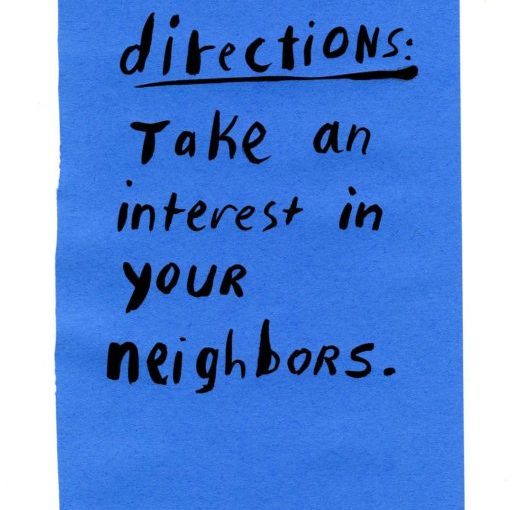 directions:
Take an
interest in
YOUR
neighbors.